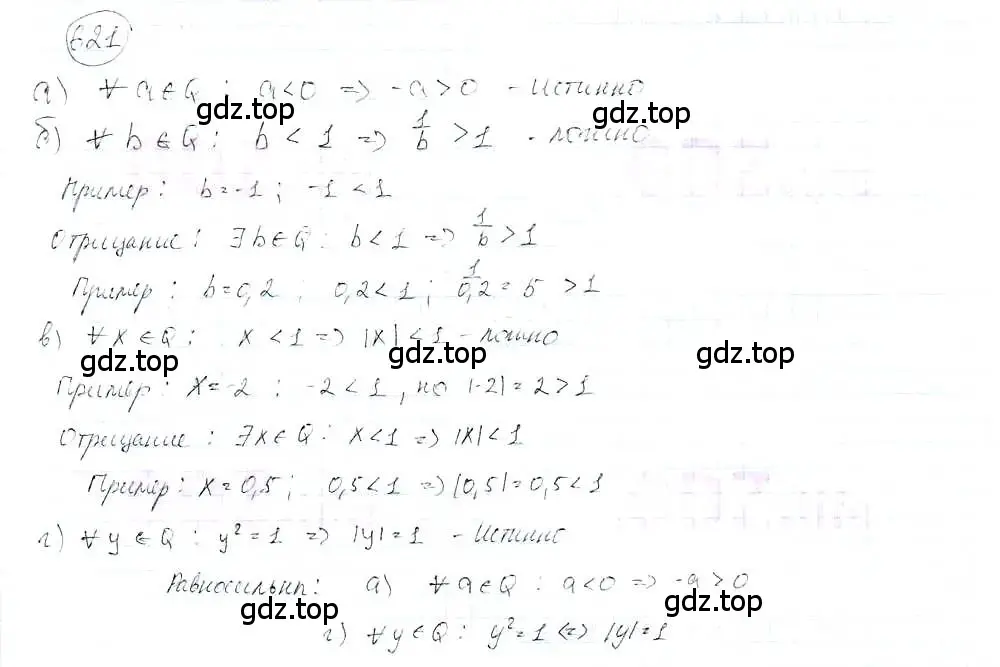 621
а) ∀ a ∈ Q : a < 0 => -a > 0 - Истинно
gdz.top gdz.top
б) ∀ b ∈ Q : b < 1 => 1/b > 1 - ложно
Пример : b = -1 ; -1 < 1
Отрицание : ∃ b ∈ Q : b < 1 => 1/b > 1
Пример : b = 0,2 ; 0,2 < 1 ; 1/0,2 = 5 > 1
в) ∀ x ∈ Q : x < 1 => |x| < 1 - ложно
gdz.top gdz.top gdz.top
Пример : x = -2 ; -2 < 1 , но |-2| = 2 > 1
Отрицание : ∃ x ∈ Q : x < 1 => |x| < 1
Пример : x = 0,5 ; 0,5 < 1 => |0,5| = 0,5 < 1
г) ∀ y ∈ Q : y² = 1 => |y| = 1 - Истинно
Равносильны : а) ∀ a ∈ Q : a < 0 => -a > 0
gdz.top gdz.top
г) ∀ y ∈ Q : y² = 1 <=> |y| = 1